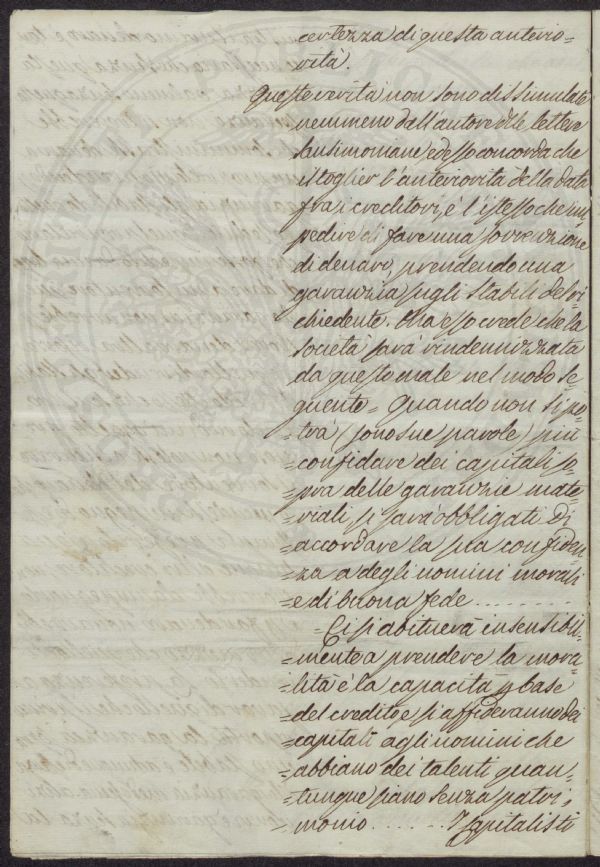 certezza di questa anterio=
rità.
Queste verità non sono dissimulate
nemmeno dall'autore delle lettere
Sansimoniane ed esso concorda che
il toglier l'anteriorità della data
fra i creditori, è l'istesso che im
pedire di fare una sovvenzione
di denaro, prendendo una
garanzia sugli stabili del ri
chiedente. Ma esso crede che la
società sarà rindennizzata
da questo male nel modo se
guente = Quando non si po=
=trà (sono sue parole) più
=confidare dei capitali so
=pra delle garanzie mate
=riali, si sarà obbligati di
=accordare la sua confiden
=za a degli uomini morali
=e di buona fede ..........
=Ci si abituerà insensibil=
=mente a prendere la mora
=lità e la capacità p base
=del credito e si affideranno dei
=capitali agli uomini che
=abbiano dei talenti quan=
=tunque siano senza patri=
=monio ....... I capitalisti